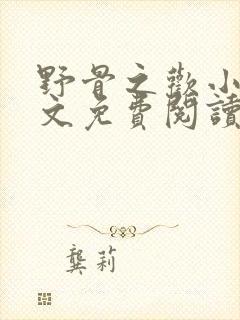 野骨之歡小
文免費閱讀
龔莉